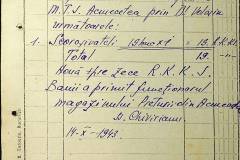 M.T.S. Acmecetea prin D. Veloriu
următoarele:
1. Scorojivateli: 19buc x 1 = 19. R.K.K.S.
Total 19. —"—
Nouă spre zece R.K.K.S.
Banii a primit funcționarul
magazinului Preturii din Acmecetea
D. Chivirianu
14-X-1943